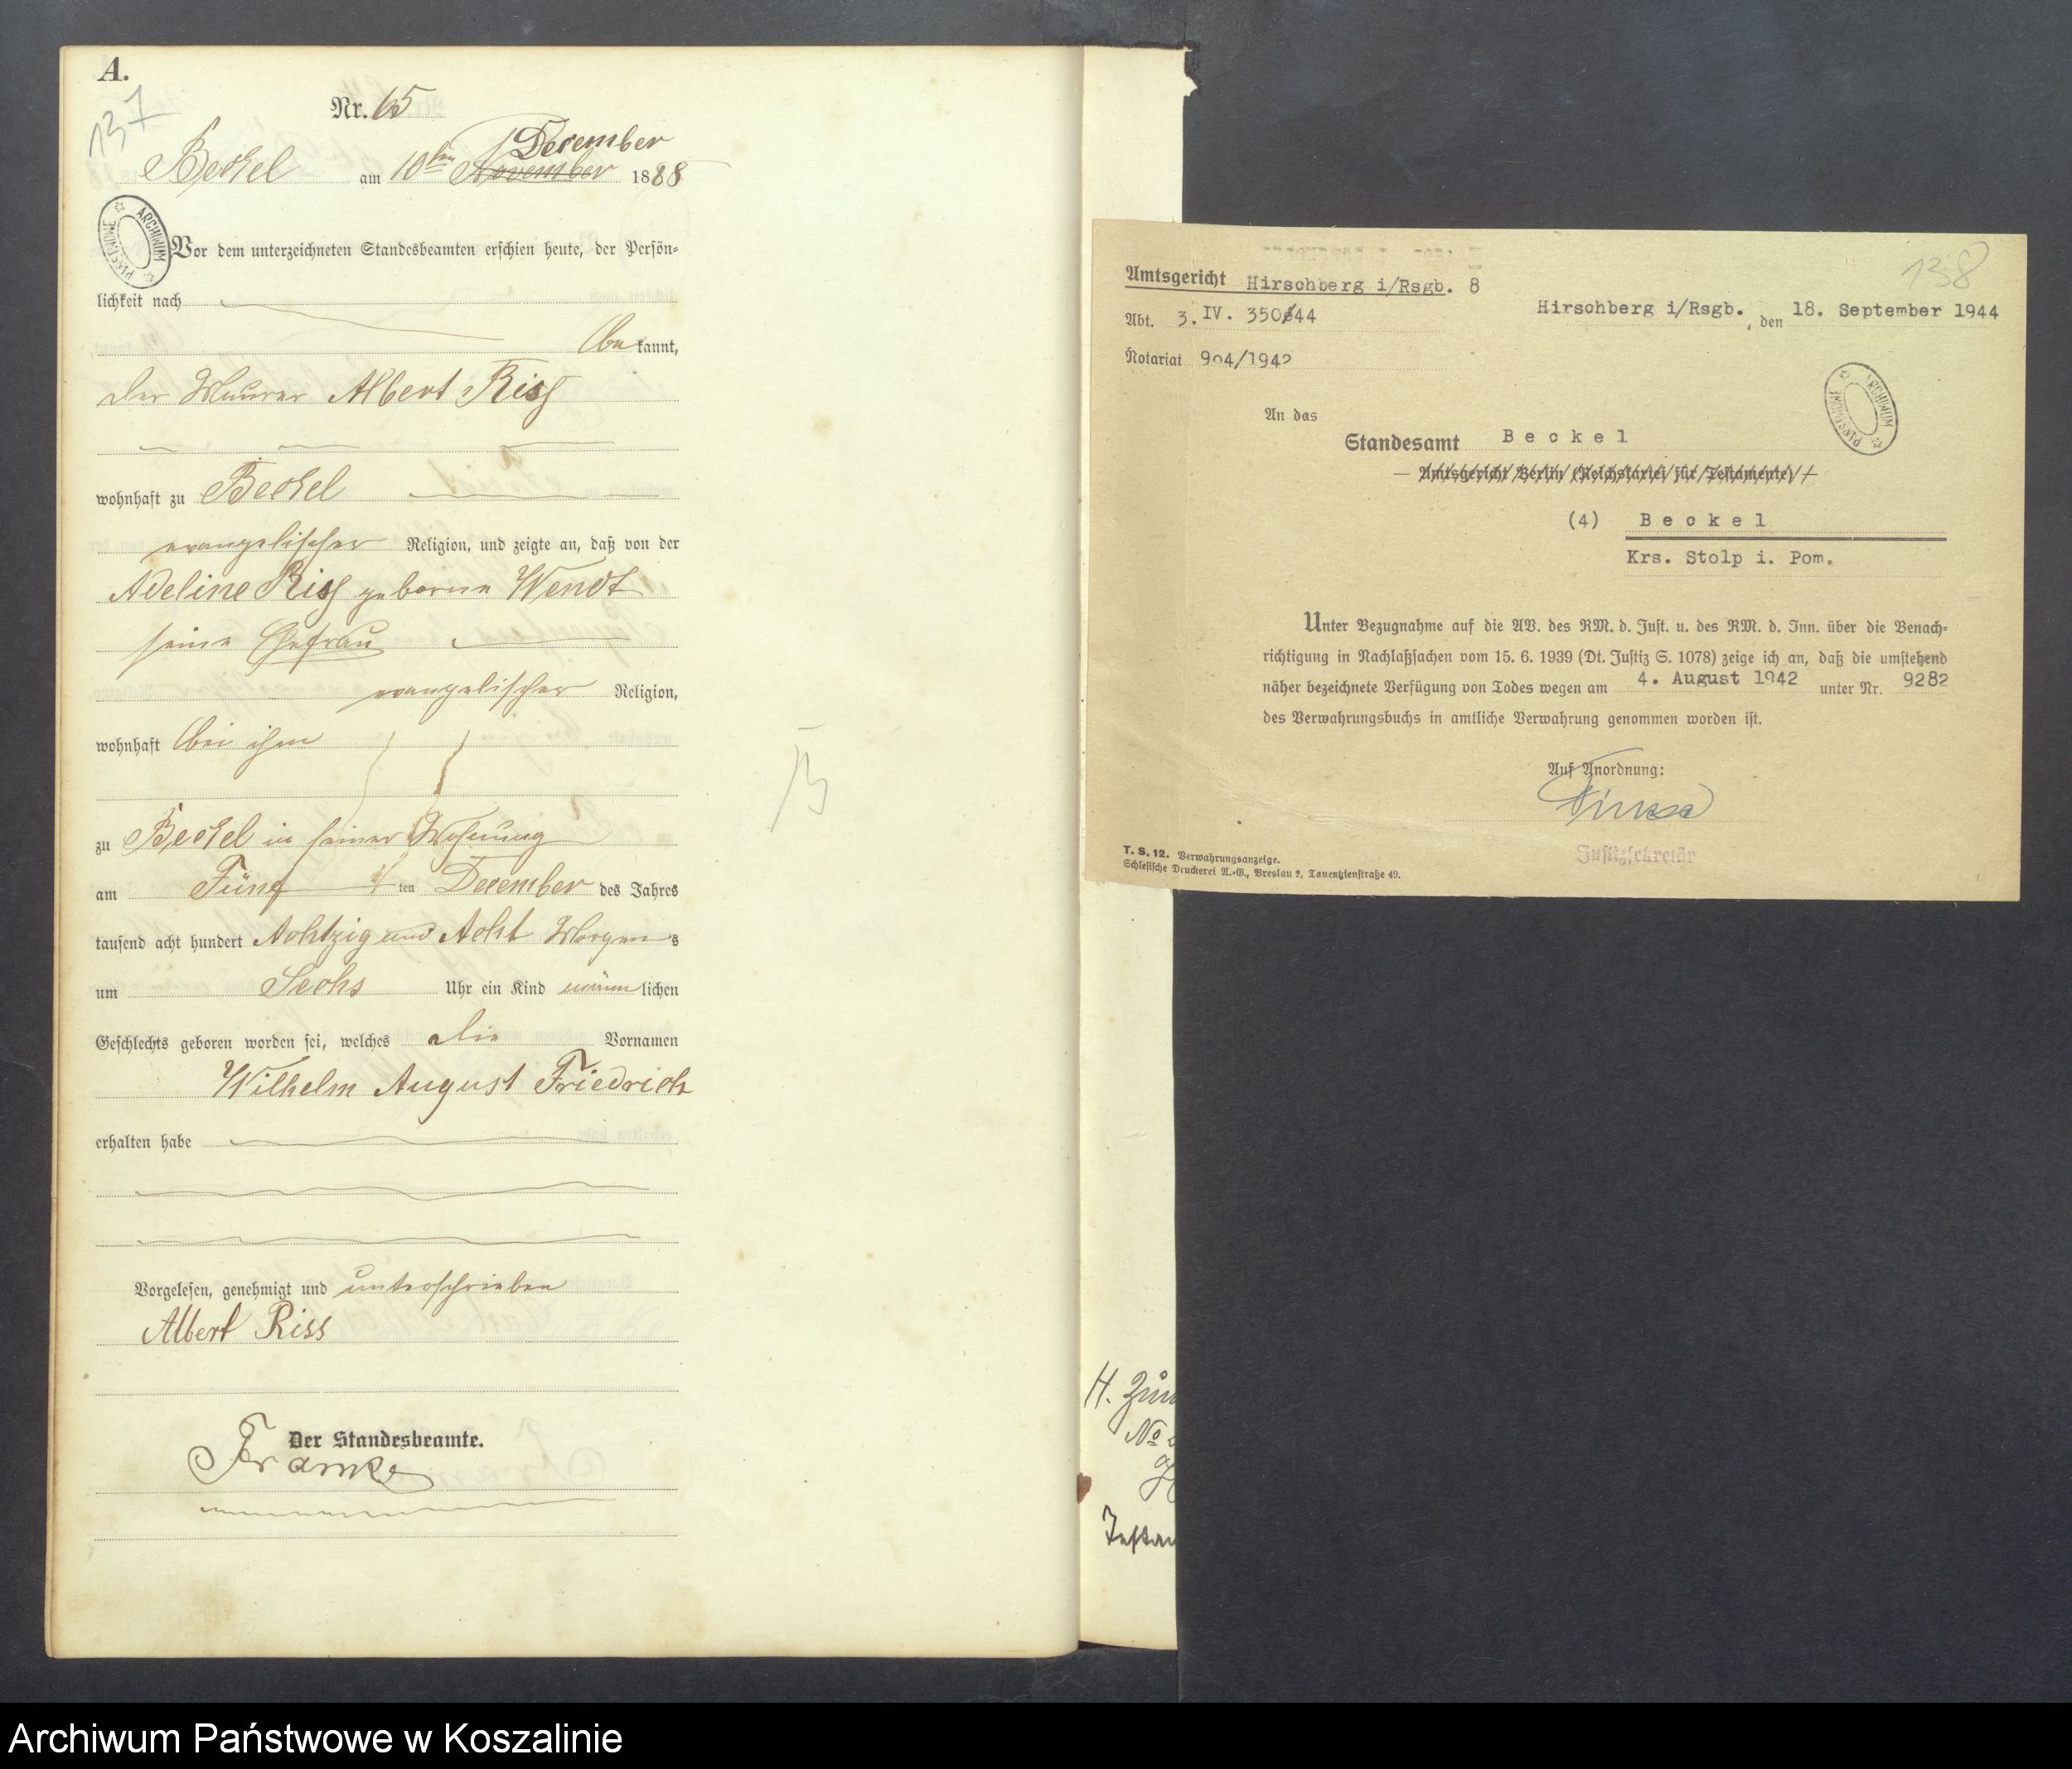 A.
137
Nr. 65
December
Beckel am 10ten November 1888
ARCHIWUM PAŃSTWOWE
Vor dem unterzeichneten Standesbeamten erschien heute, der Persön-
lichkeit nach
bekannt,
der Maurer Albert Riss
wohnhaft zu Beckel
evangelischer Religion, und zeigte an, daß von der
Adeline Riss geborene Wendt
seine Ehefrau
evangelischer Religion,
wohnhaft bei ihm
zu Beckel in seiner Wohnung
am Fünf ten December des Jahres
tausend acht hundert Achtzig und Acht Morgens
um Sechs Uhr ein Kind männlichen
Geschlechts geboren worden sei, welches die Vornamen
Wilhelm August Friedrich
erhalten habe
Vorgelesen, genehmigt und unterschrieben
Albert Riss
Der Standesbeamte.
Franke
H.
No
Amtsgericht Hirschberg i/Rsgb. 8
138
Hirschberg i/Rsgb., den 18. September 1944
Abt. 3. IV. 350 44
Notariat 904/1942
ARCHIWUM PAŃSTWOWE
An das
Standesamt Beckel
Amtsgericht Berlin (Reichskartei für Testamente)
(4) Beckel
Krs. Stolp i. Pom.
Unter Bezugnahme auf die AV. des RM. d. Just. u. des RM. d. Inn. über die Benach-
richtigung in Nachlaßsachen vom 15. 6. 1939 (Dt. Justiz S. 1078) zeige ich an, daß die umstehend
näher bezeichnete Verfügung von Todes wegen am 4. August 1942 unter Nr. 9282
des Verwahrungsbuchs in amtliche Verwahrung genommen worden ist.
Auf Anordnung:
Justizsekretär
T. S. 12. Verwahrungsanzeige.
Schlesische Druckerei A.-G., Breslau 2, Tauentzienstraße 49.
Archiwum Państwowe w Koszalinie